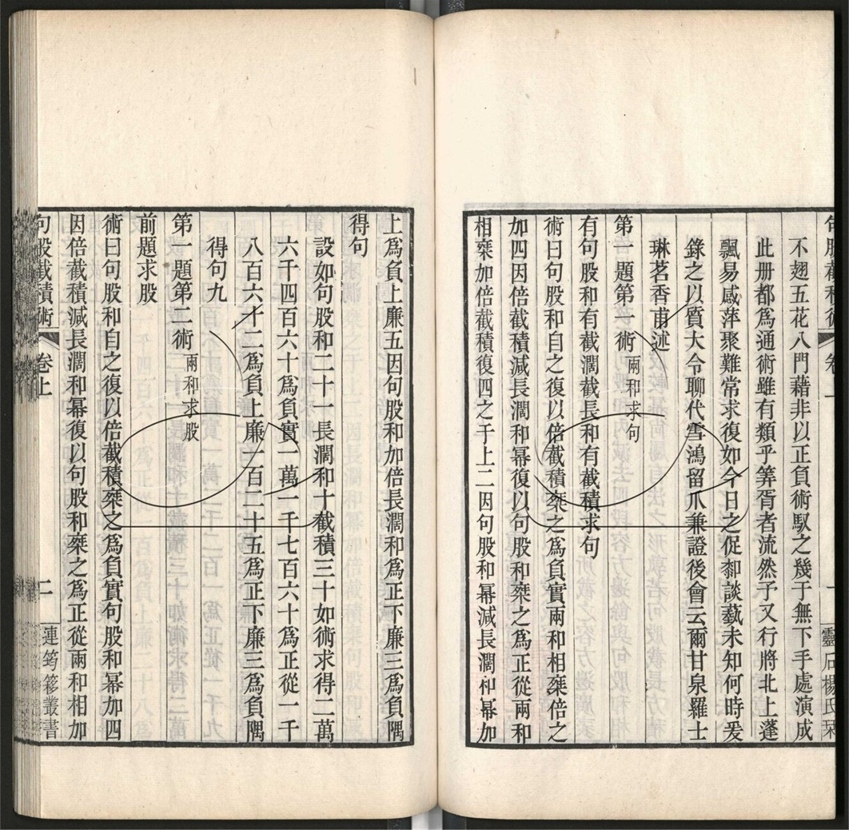 句股截積術 卷上 一 靈石楊氏栞
不翅五花八門藉非以正負術馭之幾于無下手處演成
此册都爲通術雖有類乎筭胥者流然予又行將北上蓬
飄易感萍聚難常求復如今日之促郀談蓺未知何時爰
錄之以質大令聊代雪鴻留爪兼證後會云爾甘泉羅士
琳茗香甫述
第一題第一術 兩和求句
有句股和有截濶截長和有截積求句
術曰句股和自之復以倍截積椉之爲負實兩和相椉倍之
加四因倍截積減長濶和冪復以句股和椉之爲正從兩和
相椉加倍截積復四之于上二因句股和冪減長濶和冪加
上爲負上廉五因句股和加倍長濶和爲正下廉三爲負隅
得句
設如句股和二十一長濶和十截積三十如術求得二萬
六千四百六十爲負實一萬一千七百六十爲正從一千
八百六十二爲負上廉一百二十五爲正下廉三爲負隅
得句九
第一題第二術 兩和求股
前題求股
術曰句股和自之復以倍截積椉之爲負實句股和冪加四
因倍截積減長濶和冪復以句股和椉之爲正從兩和相加
句股截積術 卷上 二 連筠簃叢書